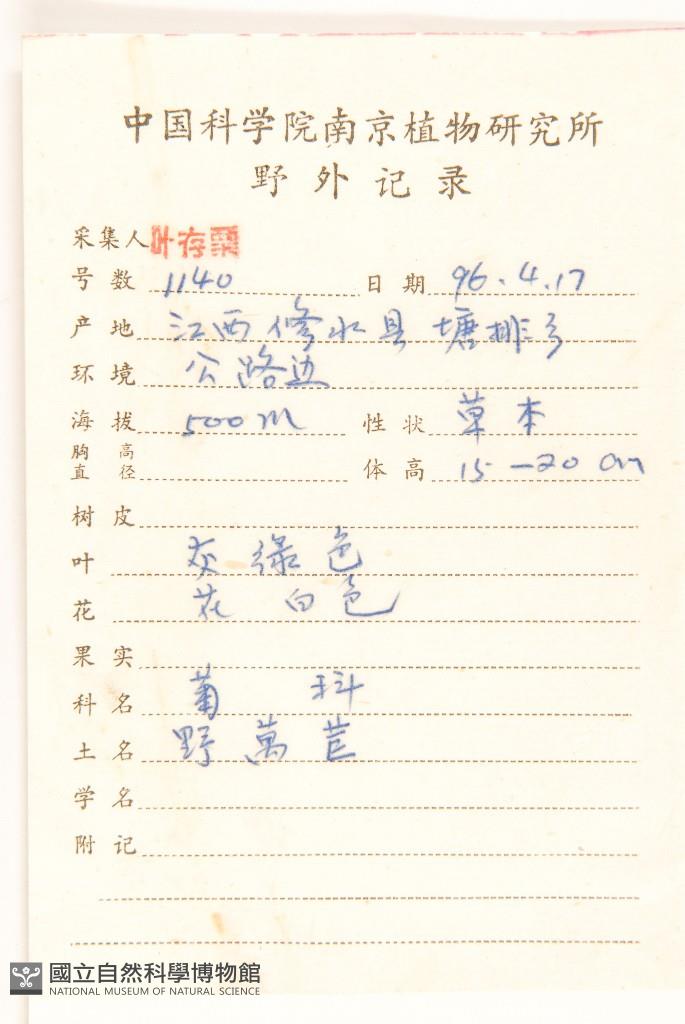 中国科学院南京植物研究所
野外记录
采集人 叶存粟
号数 1140 日期 96.4.17
产地 江西修水县塘排乡
环境 公路边
海拔 500m 性状 草本
胸高直径 体高 15-20cm
树皮
叶 灰绿色
花 花 白色
果实
科名 菊 科
土名 野莴苣
学名
附记
國立自然科學博物館
NATIONAL MUSEUM OF NATURAL SCIENCE